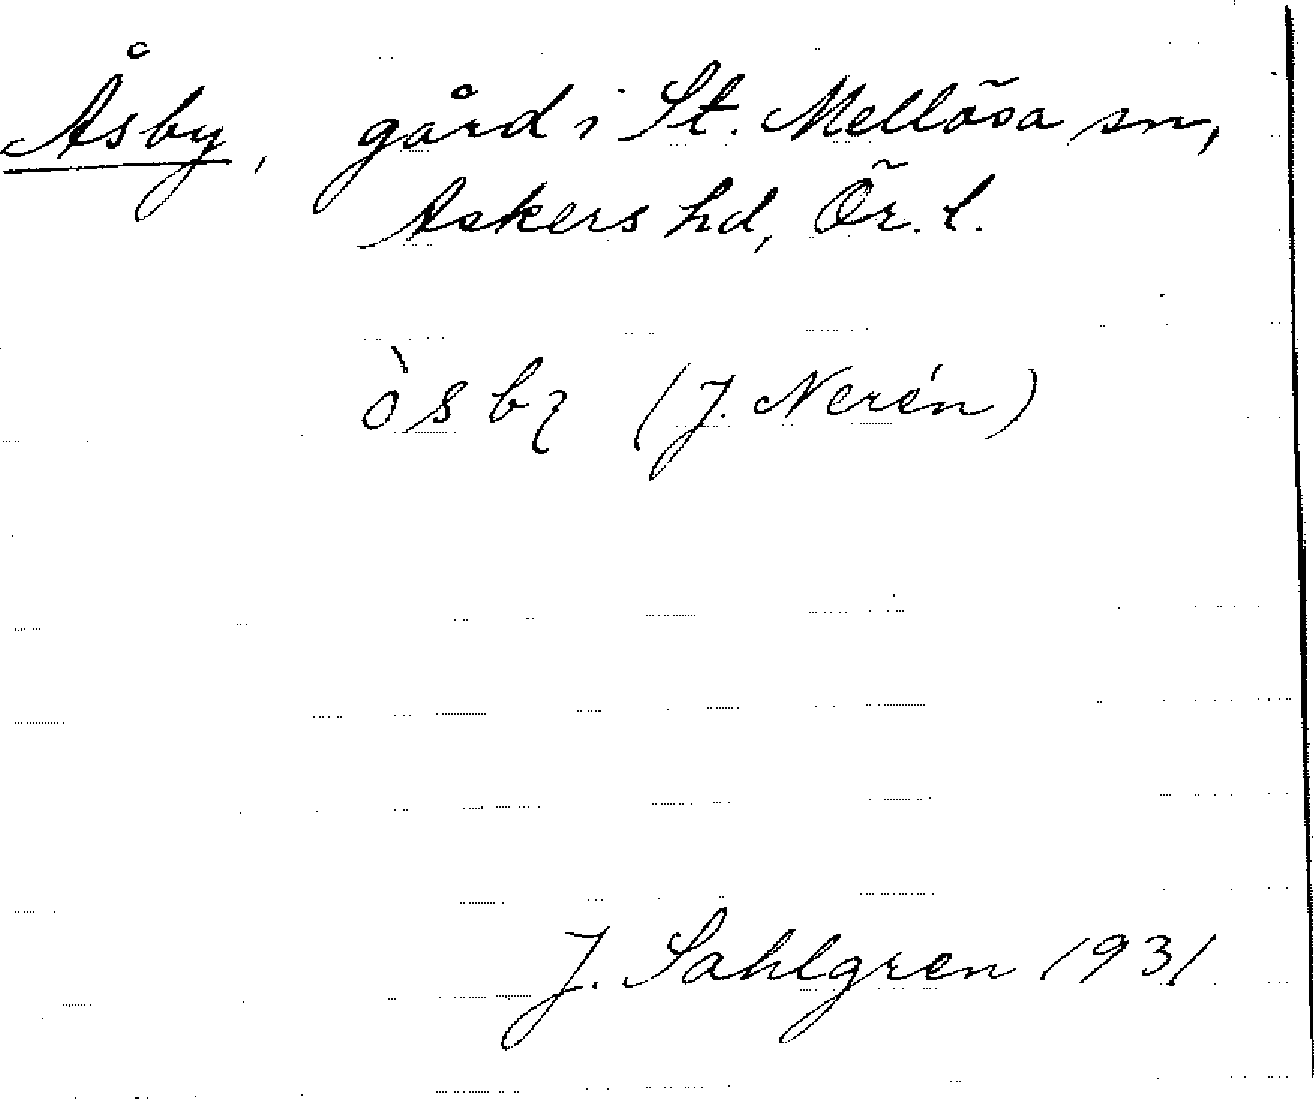 Åsby, gård i St. Mellösa sn,
Askers hd, Ör. l.
òsbʒ (J. Nerén)
J. Sahlgren 1931